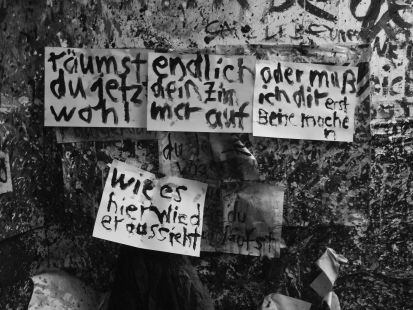 räumst
du jetz
wohl
endlich
dein Zim
mer auf
oder muß
ich dir erst
Beine mache
n
wie es
hier wied
er aussieht
du